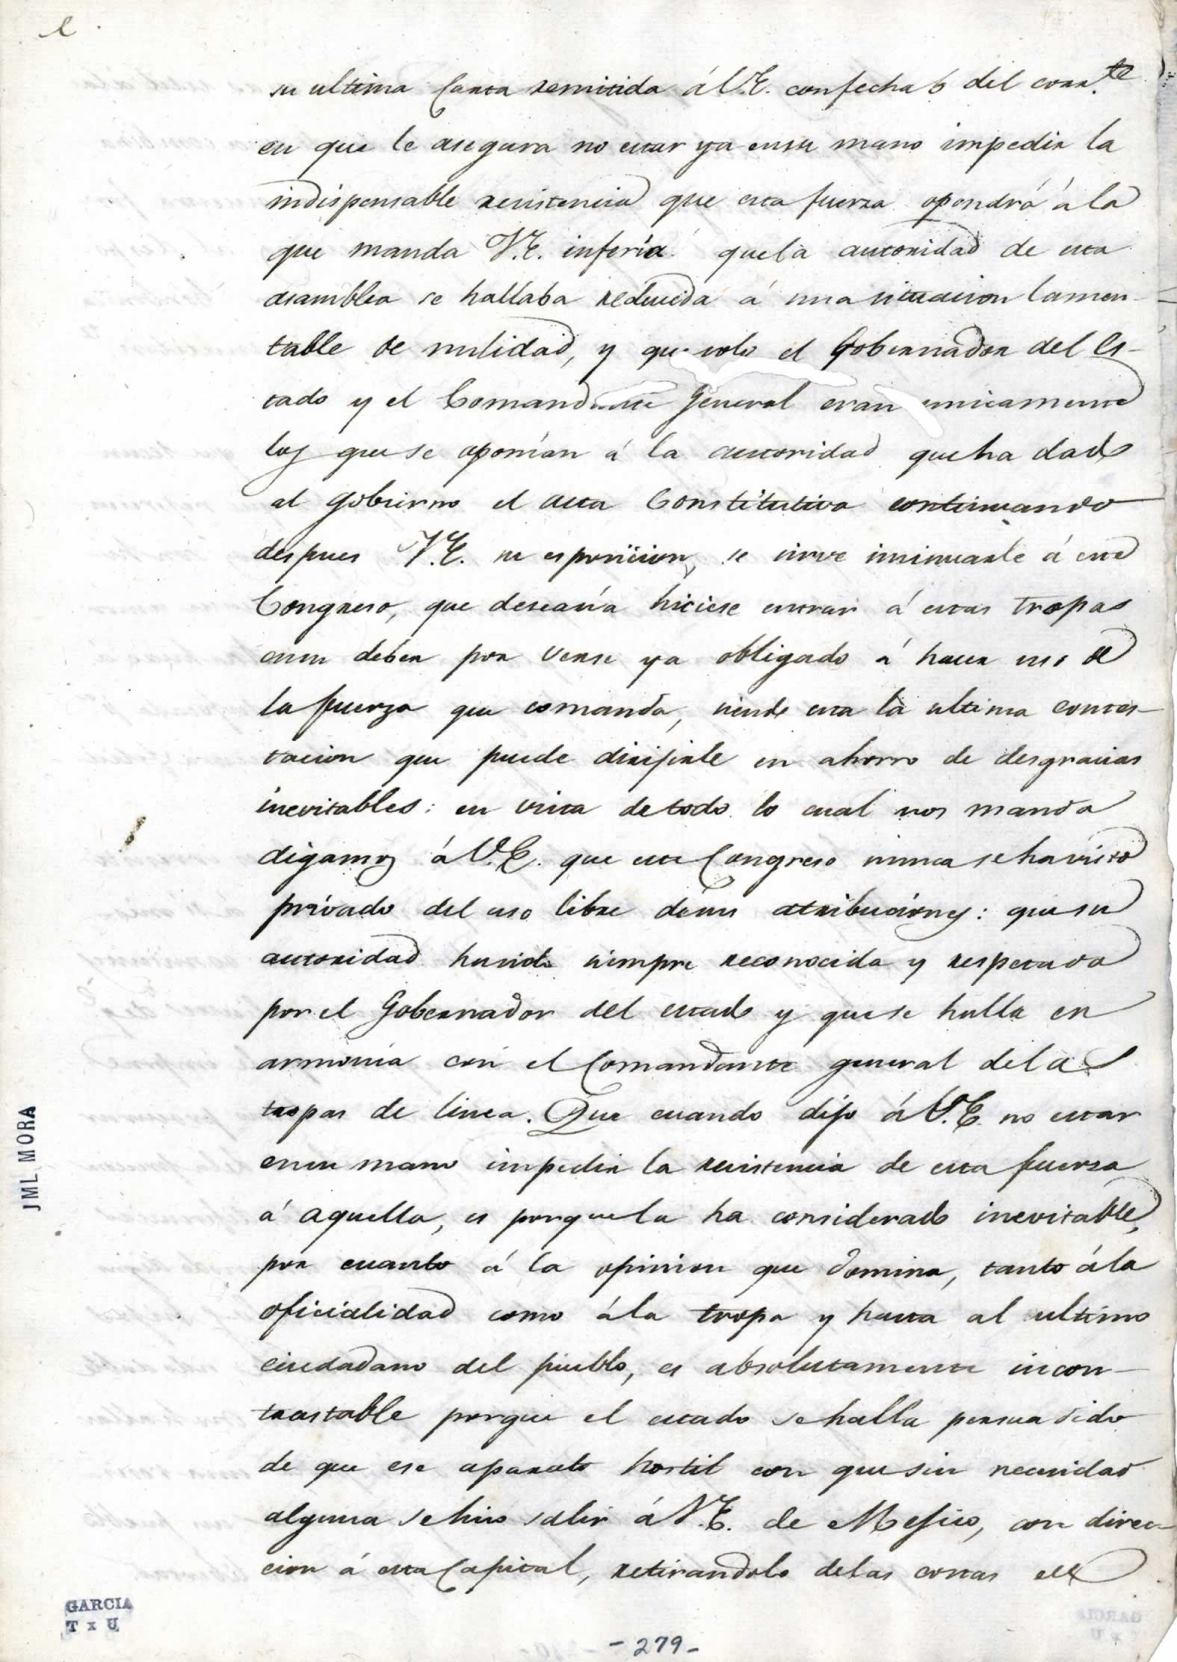 su ultima Carta remitida á V.E. con fecha 6 del corr.te
en que le asegura no estar ya ensu mano impedir la
indispensable resistencia que esta fuerza opondrá á la
que manda V.E. inferia que la autoridad de esta
asamblea se hallaba reducida á una situacion lamen-
table de nulidad, y que solo el Gobernador del Es-
tado y el Comandante General eran unicamente
los que se oponian á la autoridad que ha dado
al gobierno el acta Constitutiva continuando
despues V.E. su esposicion, se sirve insinuarle á este
Congreso, que desearia hiciese entrar á estas tropas
ensu deber por verse ya obligado á hacer uso de
la fuerza que comanda, siendo esta la ultima contes-
tacion que puede dirijirle en ahorro de desgracias
inevitables: en vista de todo lo cual nos manda
digamos á V.E. que este Congreso nunca se ha visto
privado del uso libre desus atribuciones: que su
autoridad hasido siempre reconocida y respetada
por el Gobernador del estado y que se halla en
armonia con el Comandante general delas
tropas de linea. Que cuando dijo á V.E. no estar
ensu mano impedir la resistencia de esta fuerza
á aquella, es porque la ha considerado inevitable,
por cuanto á la opinion que domina, tanto á la
oficialidad como á la tropa y hasta al ultimo
ciudadano del pueblo, es absolutamente incon-
trastable porque el estado se halla persuadido
de que ese aparato hostil con que sin necesidad
alguna se hiso salir á V.E. de Mejico, con direc-
cion á esta Capital, retirandolo delas costas
JML MORA
GARCIA
T x U
-279-